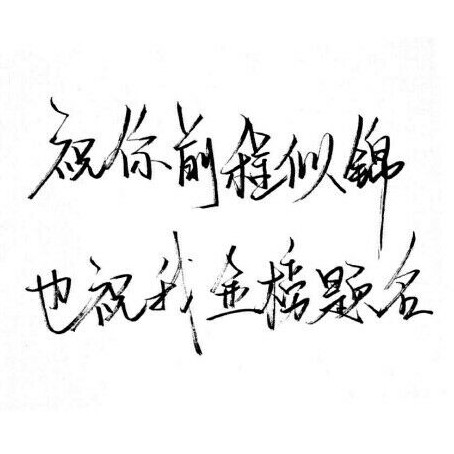 祝你前程似锦
也祝我金榜题名